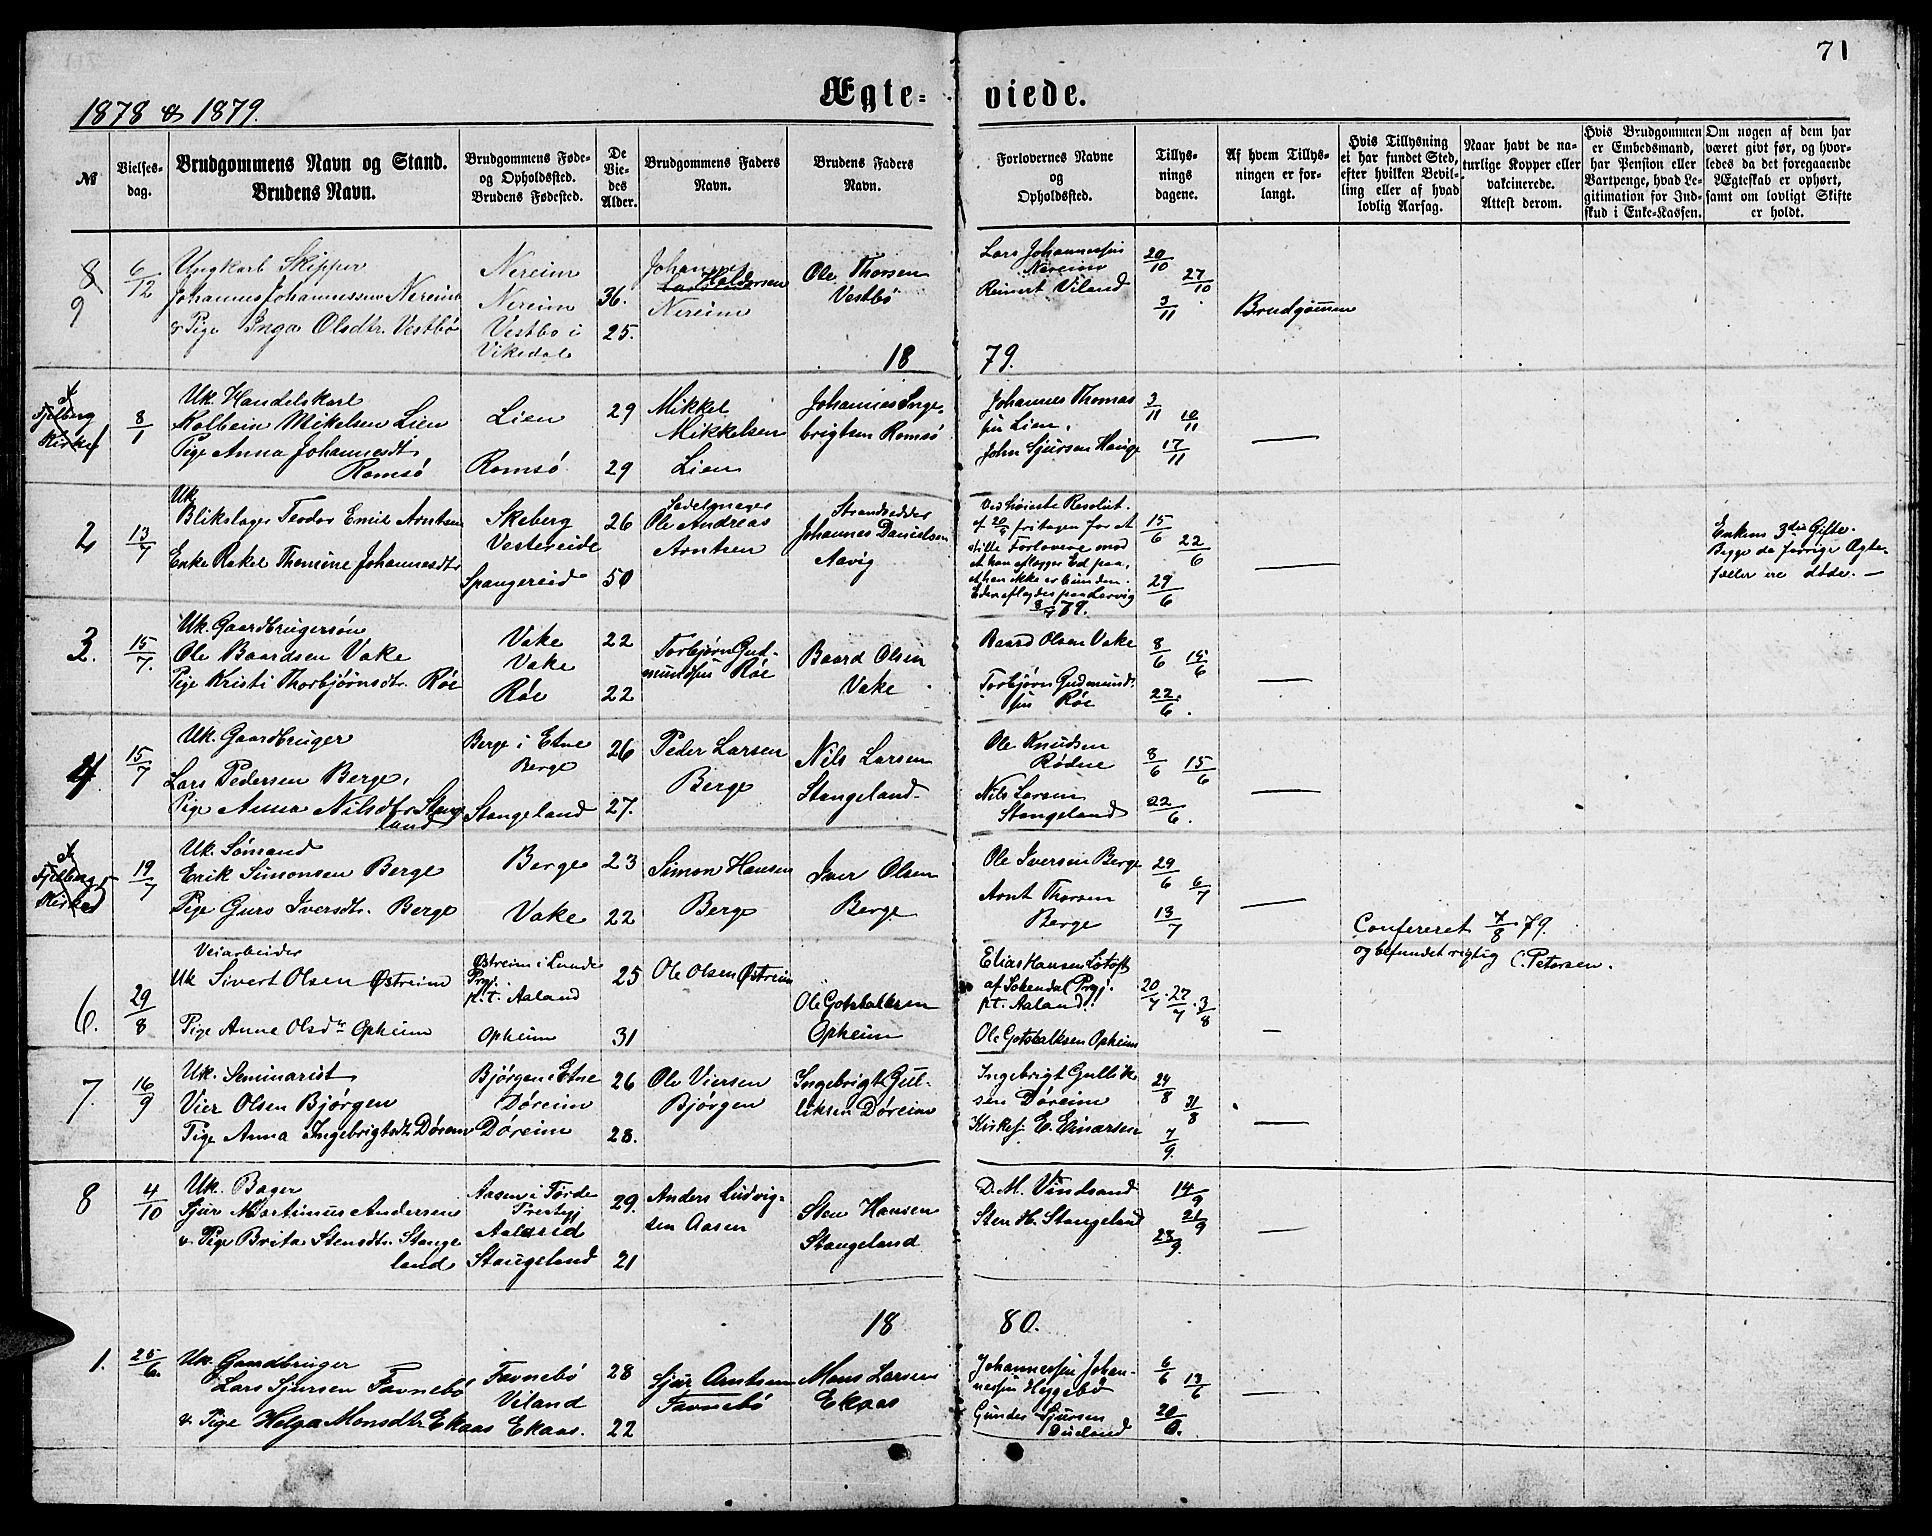 71
Ægte- viede.
1878 & 1879.
№
Vielses-
dag.
Brudgommens Navn og Stand.
Brudens Navn.
Brudgommens Føde-
og Opholdssted.
Brudens Fødested.
De
Vie-
des
Alder.
Brudgommens Faders
Navn.
Brudens Faders
Navn.
Forlovernes Navne
og
Opholdssted.
Tillys-
nings
dagene.
Af hvem Tillys-
ningen er for-
langt.
Hvis Tillysning
ei har fundet Sted,
efter hvilken Bevil-
ling eller af hvad
lovlig Aarsag.
Naar havt de na-
turlige Kopper eller
vakcinerede.
Attest derom.
Hvis Brudgommen
er Embedsmand,
har Pension eller
Vartpenge, hvad Le-
gitimation for Ind-
skud i Enke-Kassen.
Om nogen af dem har
været gift før, og hvor-
ledes da det foregaaende
Ægteskab er ophørt,
samt om lovligt Skifte
er holdt.
8
9
6/12
Ungkarl Skipper
Johannes Johannessen Nereim
& Pige Inga Olsdtr. Vestbø
Nereim
Nereim
Vestbø i
Vikedal
36.
25.
Johannes
Haldorsen
Nereim
Ole Thorsen
Vestbø
Lars Johannessen
Nereim
Reinert Viland
20/10
27/10
3/11
Brudgommen
18 79.
Fjelberg
Kirke
1
8/1
Uk. Handelskarl
Kolbein Mikelsen Lien
Pige Anna Johannesdt.
Romsø
Lien
Romsø
29
29
Mikkel
Mikkelsen
Lien
Johannes Inge-
brigtsen Romsø
Johannes Thomas
sen Lien.
John Sjursen Hauge
3/11
10/11
17/11
2
13/7
Uk.
Blikslager Teodor Emil Arntsen
Enke Rakel Thomine Johannesdtr
Skeberg
Vestereide
Spangereid
26
50
Sadelmager
Ole Andreas
Arntsen
Strandsidder
Johannes Danielsen
Aavig
Ved høieste Resolut.
af 20/5 fritagen for at
stille Forlovere mod
at han aflægger Ed paa,
at han ikke er bunden.
Eden aflagdes paa Lervig
8/7 79.
15/6
22/6
29/6
Enkens 3die Gifte.
Begge de forrige Ægte-
fæller ere døde. —
3.
15/7.
Uk. Gaardbrugersøn
Ole Baardsen Vake
Pige Kristi Thorbjørnsdtr. Røe
Vake
Vake
Røe
22
22
Torbjørn Gud-
mundsen Røe
Baard Olsen
Vake
Baard Olsen Vake
Torbjørn Gudmund-
sen Røe
8/6
15/6
22/6.
4.
15/7
Uk. Gaardbruger
Lars Pedersen Berge,
Pige Anna Nilsdtr Stange
land
Berge i Etne
Berge
Stangeland
26
27.
Peder Larsen
Berge
Nils Larsen
Stangeland
Ole Knudsen
Rødne
Nils Larsen
Stangeland
8/6
15/6
22/6.
Fjelberg
Kirke
5
19/7
Uk. Sømand
Erik Simonsen Berge
Pige Guro Iversdtr. Berge
Berge
Vake
23
22
Simon Hansen
Berge
Iver Olsen
Berge
Ole Iversen Berge
Arnt Thorsen
Berge
29/6
6/7
13/7
Confereret 7/8 79.
og befundet rigtig C. Petersen.
6.
29/8
Veiarbeider
Uk Sivert Olsen Østreim
Pige Anne Olsdtr Opheim
Østreim i Lunde
Prgj.
p.t. Aaland
Opheim
25
31
Ole Olsen Østreim
Ole Gotskalksen
Opheim
Elias Hansen Løtoft
af Sokendal Prgj.
p.t. Aaland.
Ole Gotskalksen Opheim
20/7 . 27/7 . 3/8
7
16/9
Uk. Seminarist
Vier Olsen Bjørgen
Pige Anna Ingebrigtsdt. Døreim
Bjørgen i Etne
Døreim
Døreim
26
28.
Ole Viersen
Bjørgen
Ingebrigt Gul-
liksen Døreim
Ingebrigt Gullik
sen Døreim
Kirkes. E. Einarsen
24/8
31/8
7/9.
8
4/10
Uk. Bager
Sjur Martinus Andersen
& Pige Brita Stensdtr. Stange
land
Aasen i Førde
Prestegj
Aalesund
Stangeland
29.
21
Anders Ludvig-
sen Aasen
Sten Hansen
Stangeland
D. M. Vindsand
Sten H. Stangeland
14/9
21/9
28/9.
18 80.
1.
25/6.
Uk. Gaardbruger
Lars Sjursen Favnebø
& Pige Helga Monsdtr Ekaas
Favnebø
Viland
Ekaas.
28
22
Sjur Arntsen
Favnebø
Mons Larsen
Ekaas
Johannessen Johan-
nesen Heggebø
Gunder Sjursen
Dueland
6/6
13/6
20/6.